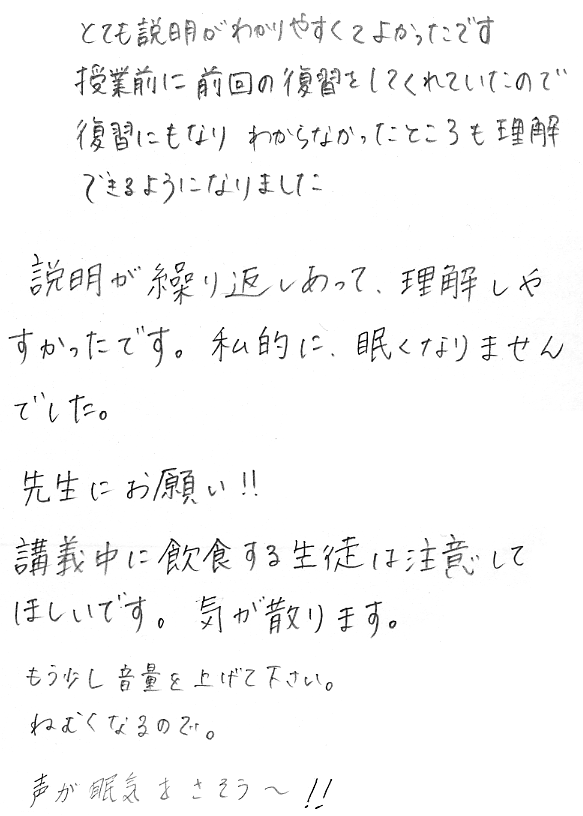 とても説明がわかりやすくてよかったです
授業前に前回の復習をしてくれていたので
復習にもなり わからなかったところも理解
できるようになりました
説明が繰り返しあって、理解しや
すかったです。私的に、眠くなりません
でした。
先生にお願い!!
講義中に飲食する生徒は注意して
ほしいです。気が散ります。
もう少し音量を上げて下さい。
ねむくなるので。
声が眠気をさそう～!!